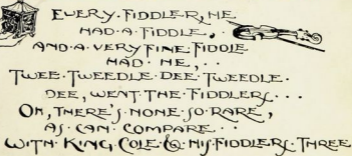 EVERY·FIDDLER, HE
HAD·A·FIDDLE,
AND·A·VERY FINE·FIDDLE
HAD·HE,··
TWEE·TWEEDLE·DEE·TWEEDLE·
DEE, WENT·THE·FIDDLERS···
OH, THERE'S·NONE·SO·RARE,
AS·CAN·COMPARE··
WITH·KING·COLE·&·HIS·FIDDLERS·THREE